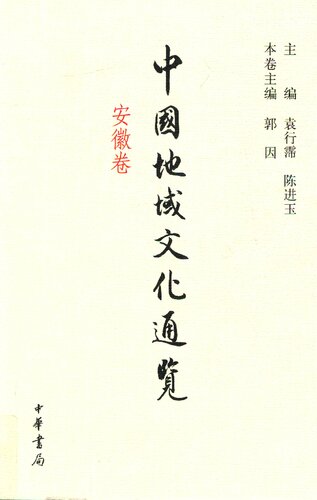 主 编 袁行霈 陈进玉
本卷主编 郭 因
中國地域文化通覽
安徽卷
中華書局